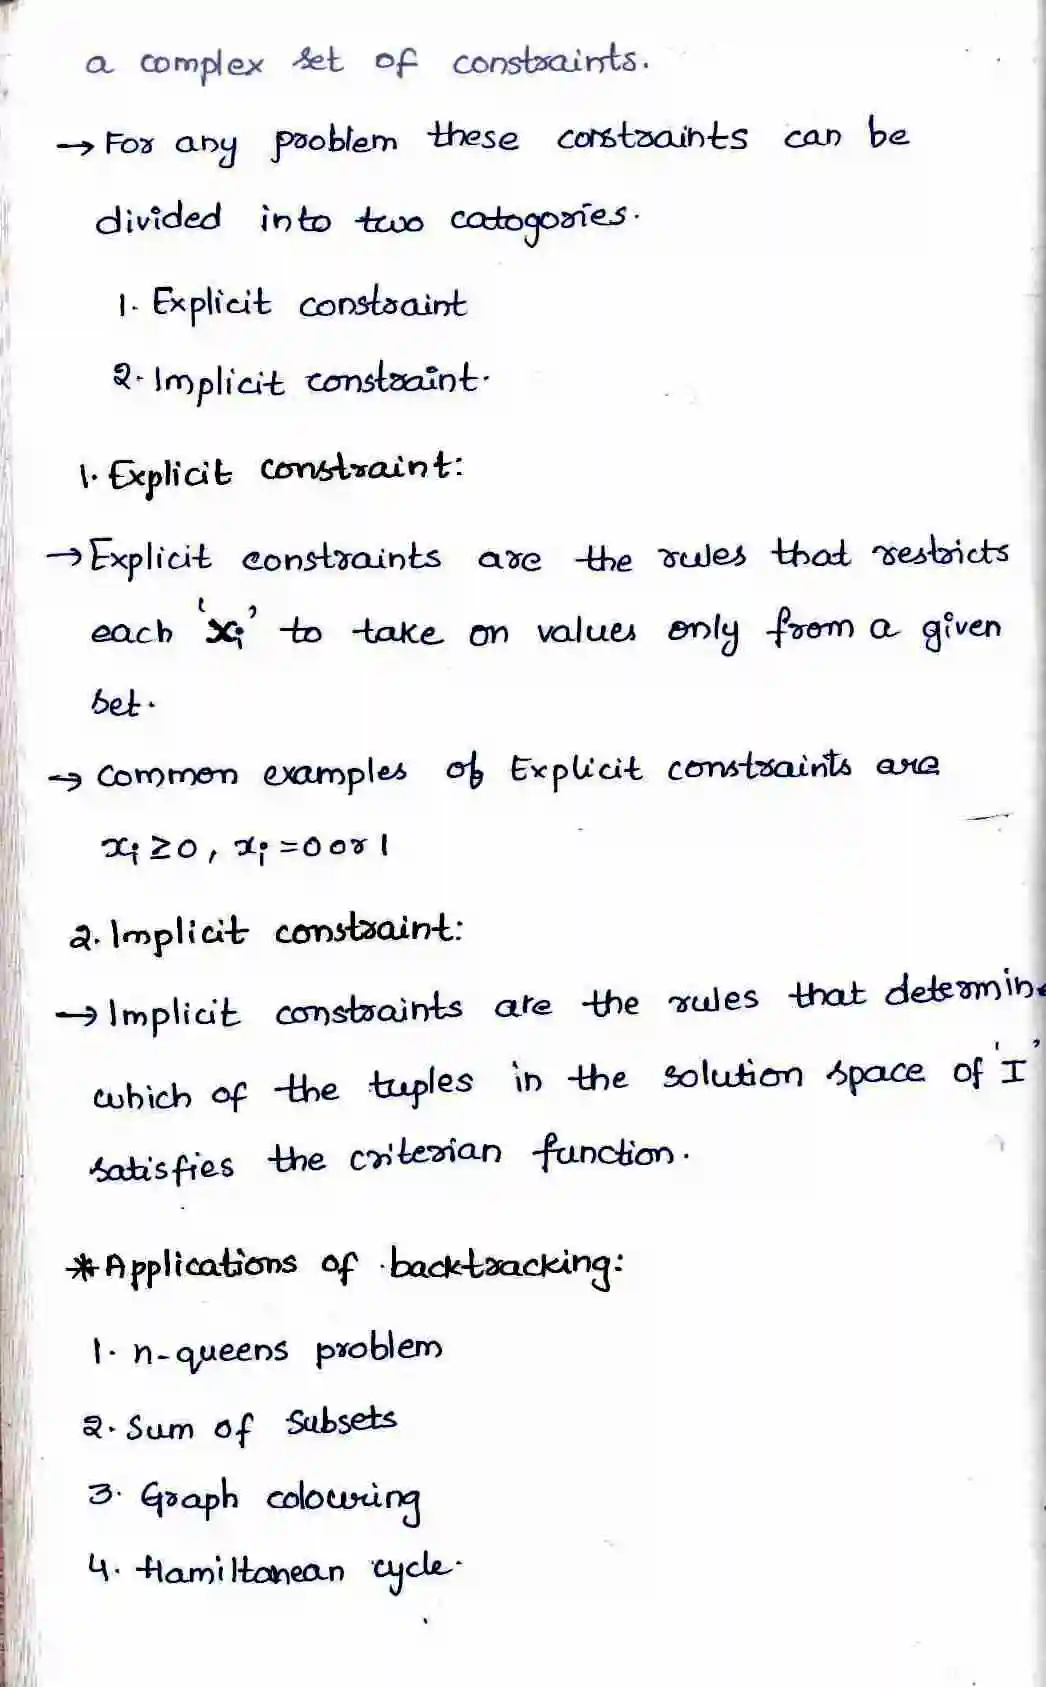 a complex set of constraints.
→ For any problem these constraints can be
divided into two catogories.
1. Explicit constraint
2. Implicit constraint.
1. Explicit constraint:
→ Explicit constraints are the rules that restricts
each 'xi' to take on values only from a given
set.
→ Common examples of Explicit constraints are
xi ≥ 0, xi = 0 or 1
2. Implicit constraint:
→ Implicit constraints are the rules that determine
which of the tuples in the solution space of 'I'
satisfies the criterian function.
* Applications of backtracking:
1. n-queens problem
2. Sum of Subsets
3. Graph colouring
4. Hamiltonean cycle.